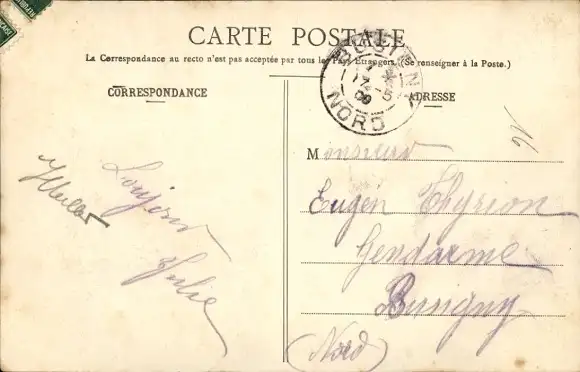 CARTE POSTALE
La Correspondance au recto n'est pas acceptée par tous les Pays Etrangers. (Se renseigner à la Poste.)
CORRESPONDANCE
ADRESSE
BUSIGNY
17-5
09
NORD
Monsieur
Eugèn Thyrion
Gendarme
Busigny
(Nord)
Julie